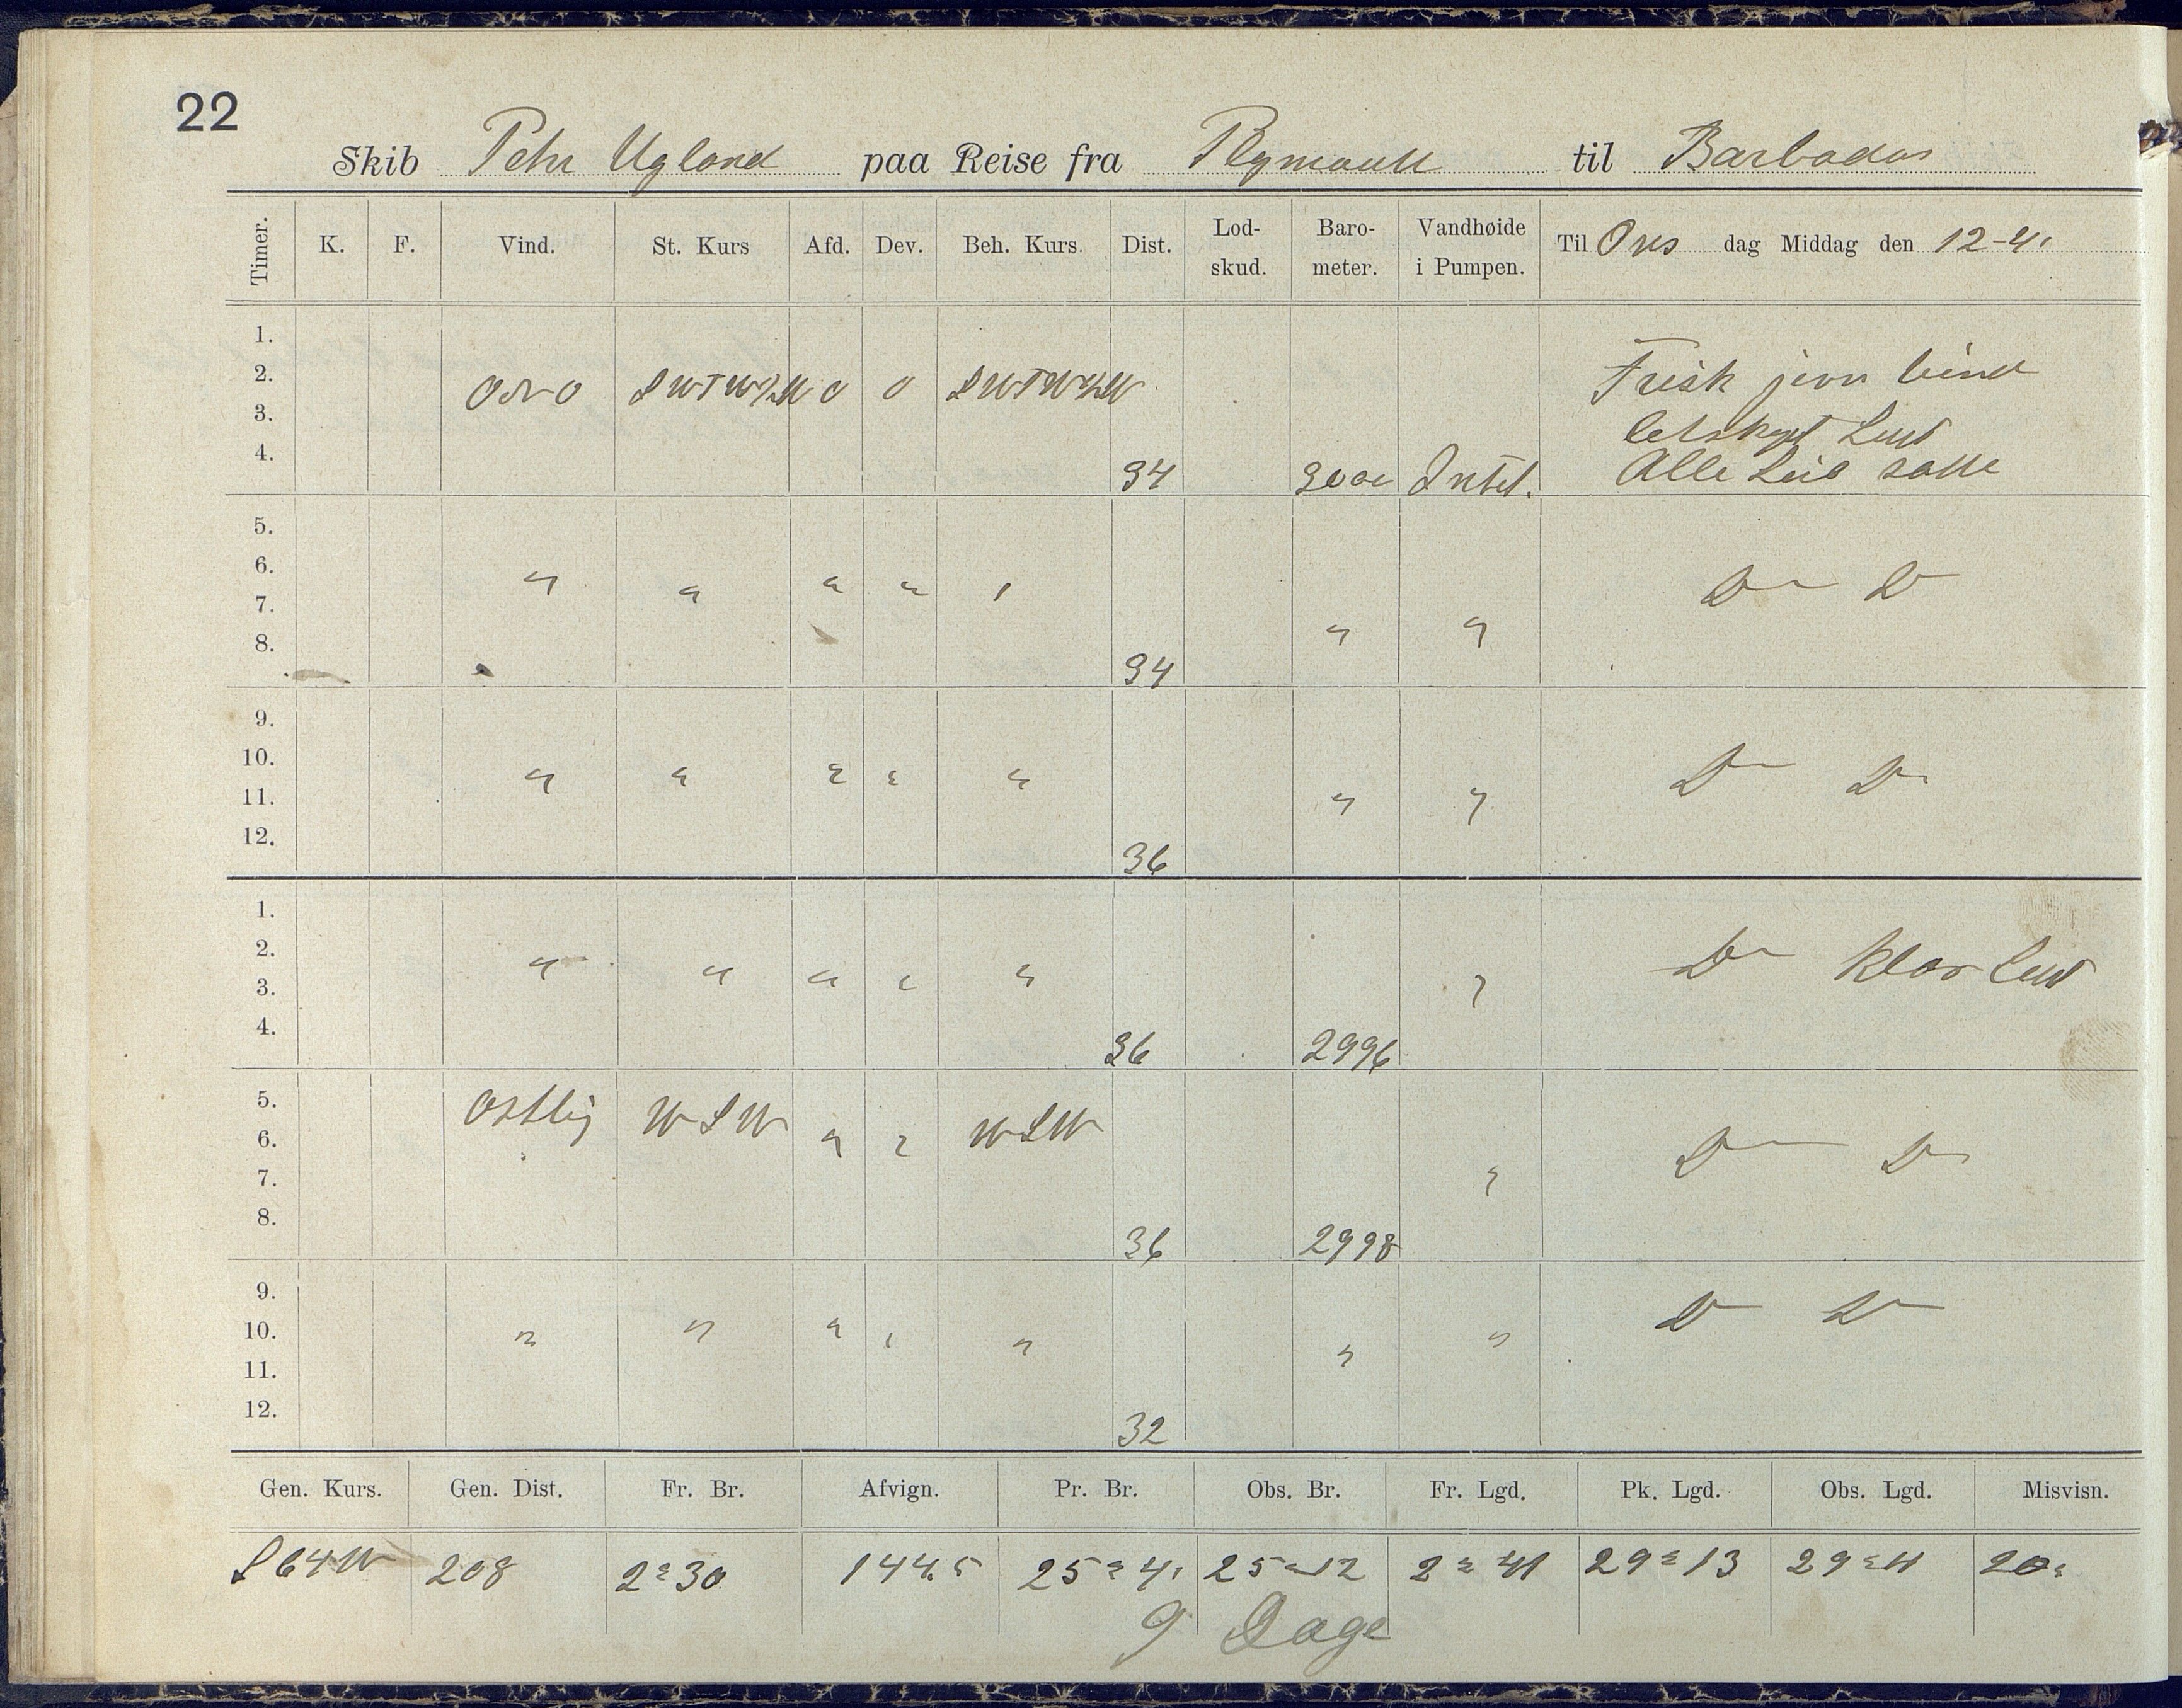 22
Skib Pehr Ugland paa Reise fra Plymouth til Barbados
Timer. K. F. Vind. St. Kurs Afd. Dev. Beh. Kurs. Dist. Lod-skud. Baro-meter. Vandhøide i Pumpen. Til Ons dag Middag den 12-4.
1.
2. ONO SWTW½W 0 0 SWTW½W Frisk jevn vind
3. letskyet Luft
4. 34 3000 Intet. Alle Seil satte
5.
6. " " " " " Do Do
7. " "
8. 34
9.
10. " " " " " Do Do
11. " "
12. 36
1.
2. " " " " " Do Klar Luft
3. "
4. 36 2996
5. Ostlig WSW " " WSW
6. Do Do
7. "
8. 36 2998
9. Do Do
10. " " " " " " "
11.
12. 32
Gen. Kurs. Gen. Dist. Fr. Br. Afvign. Pr. Br. Obs. Br. Fr. Lgd. Pk. Lgd. Obs. Lgd. Misvisn.
S64W 208 2°30 144.5 25°4' 25°12 2°41 29°13 29°11 20°
9 Dage